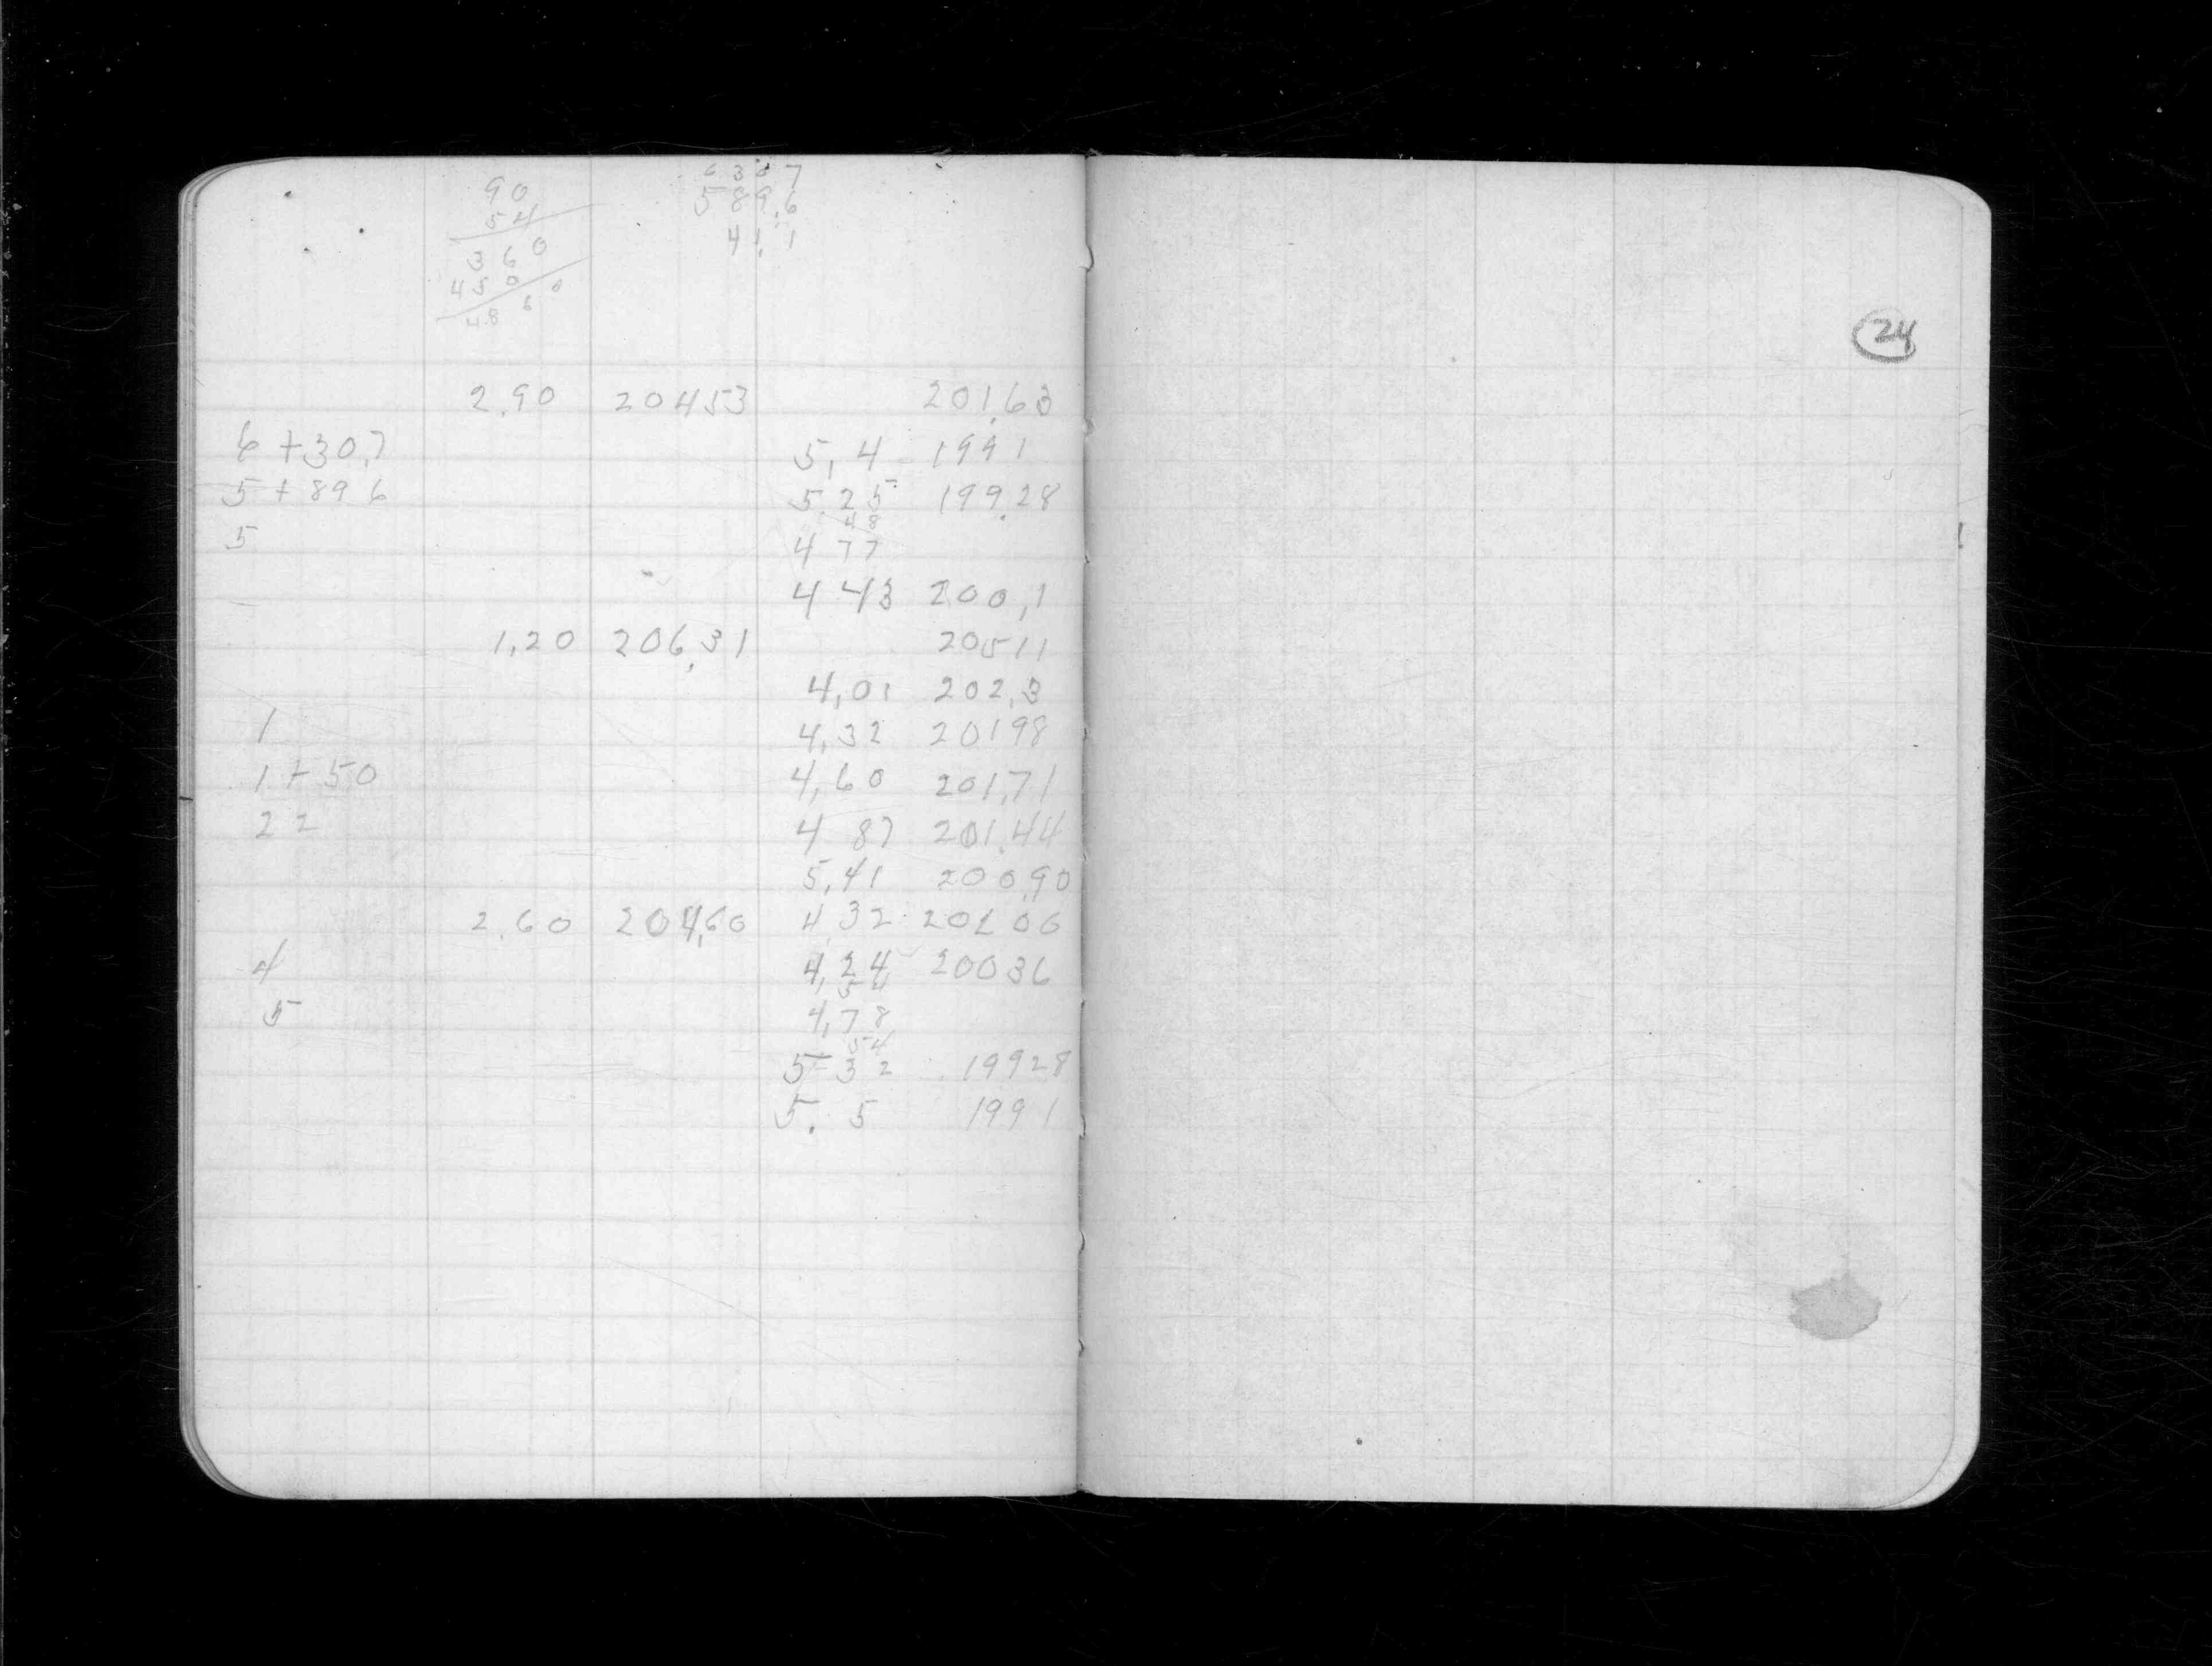 90
54
360
450
48 6 0
6307
589.6
41.1
24
2.90 20453 201.63
6 + 30.7 5,4 1991
5 + 89 6 5.25 199.28
48
5 4 77
4 43 200,1
1,20 206,31 20511
4,01 202.3
1 4,32 20198
1 + 50 4,60 201,71
2 2 4 87 201.44
5,41 200,90
2.60 204,60 4,32 201 06
4 4,24 20036
54
5 4,78
54
5 32 19928
5. 5 1991